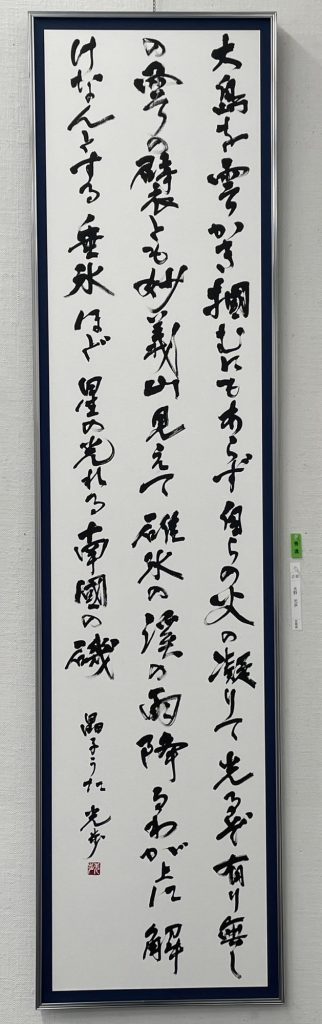 大島を雲かき掴むにもあらず自らの火の凝りて光るぞ有り無し
の の襞とも妙義山見えて碓氷の渓の雨降るわが上に解
けなんとする垂氷ほど星の光れる南國の磯
晶子うた 光歩